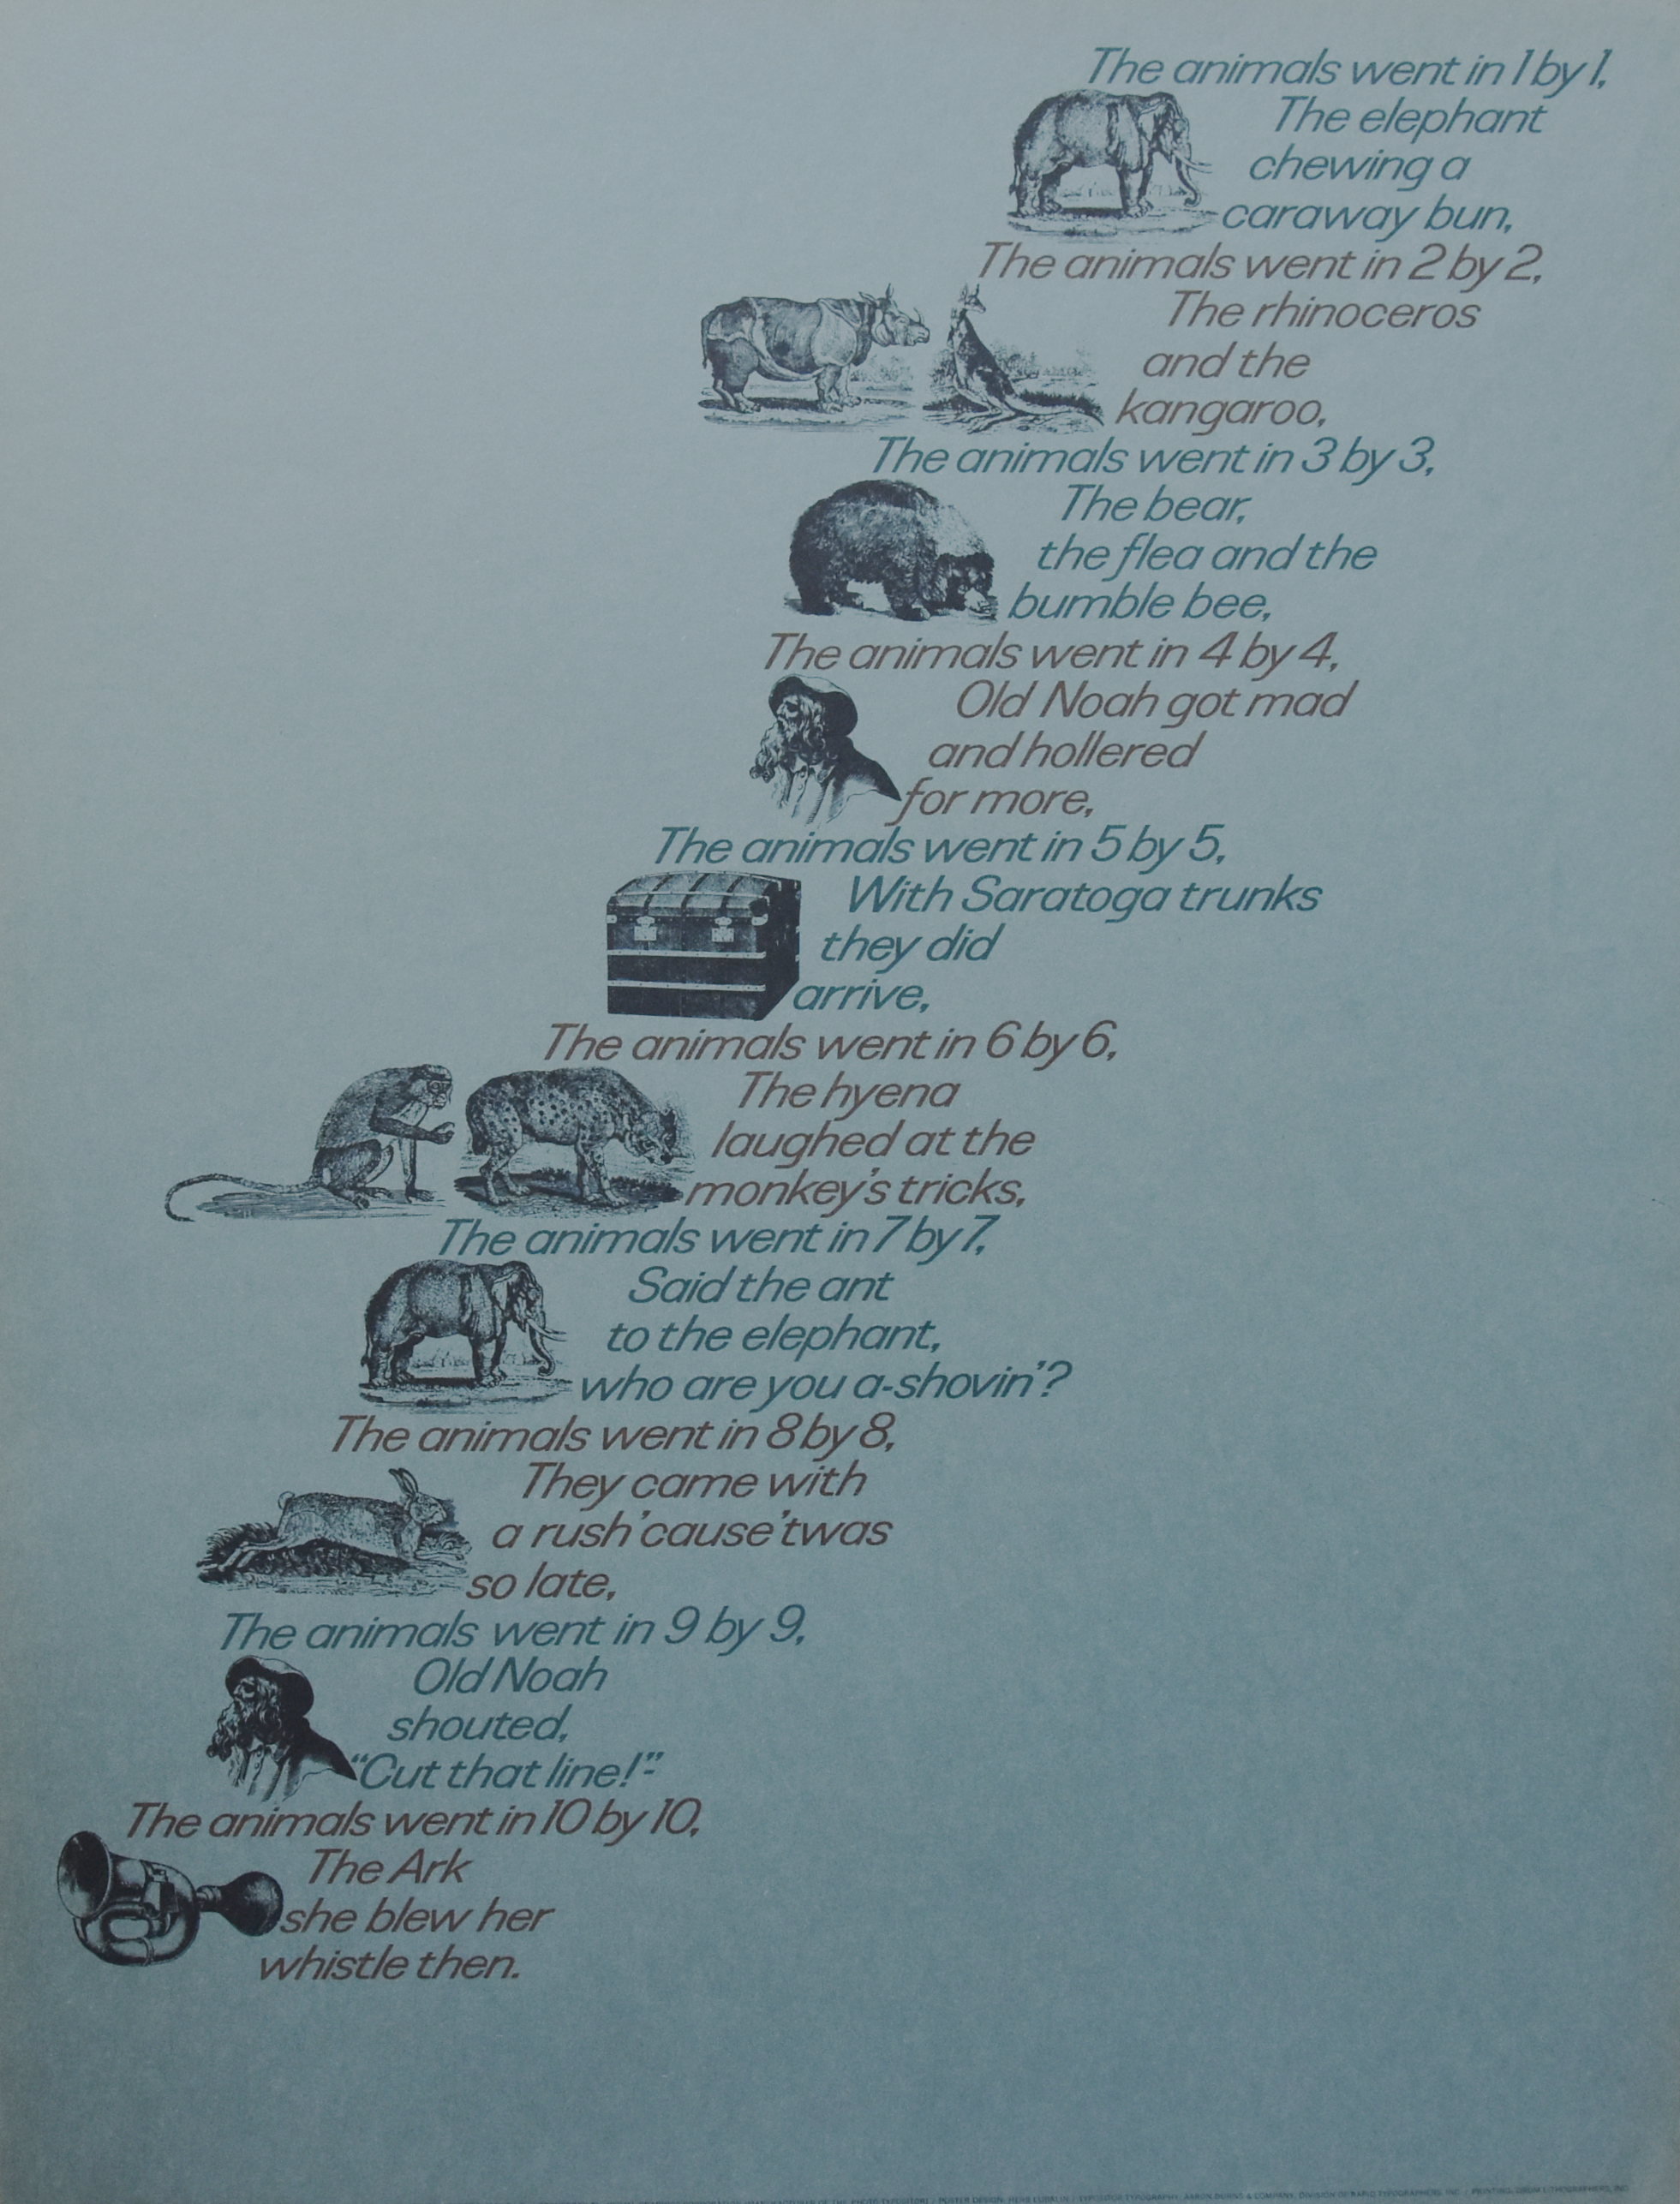 The animals went in 1 by 1,
The elephant
chewing a
caraway bun,
The animals went in 2 by 2,
The rhinoceros
and the
kangaroo,
The animals went in 3 by 3,
The bear,
the flea and the
bumble bee,
The animals went in 4 by 4,
Old Noah got mad
and hollered
for more,
The animals went in 5 by 5,
With Saratoga trunks
they did
arrive,
The animals went in 6 by 6,
The hyena
laughed at the
monkey's tricks,
The animals went in 7 by 7,
Said the ant
to the elephant,
who are you a-shovin'?
The animals went in 8 by 8,
They came with
a rush 'cause 'twas
so late,
The animals went in 9 by 9,
Old Noah
shouted,
“Cut that line!”
The animals went in 10 by 10,
The Ark
she blew her
whistle then.
POSTER DESIGN: HERB LUBALIN / TYPOSITOR TYPOGRAPHY: AARON BURNS & COMPANY, DIVISION OF RAPID TYPOGRAPHERS, INC. / PRINTING: